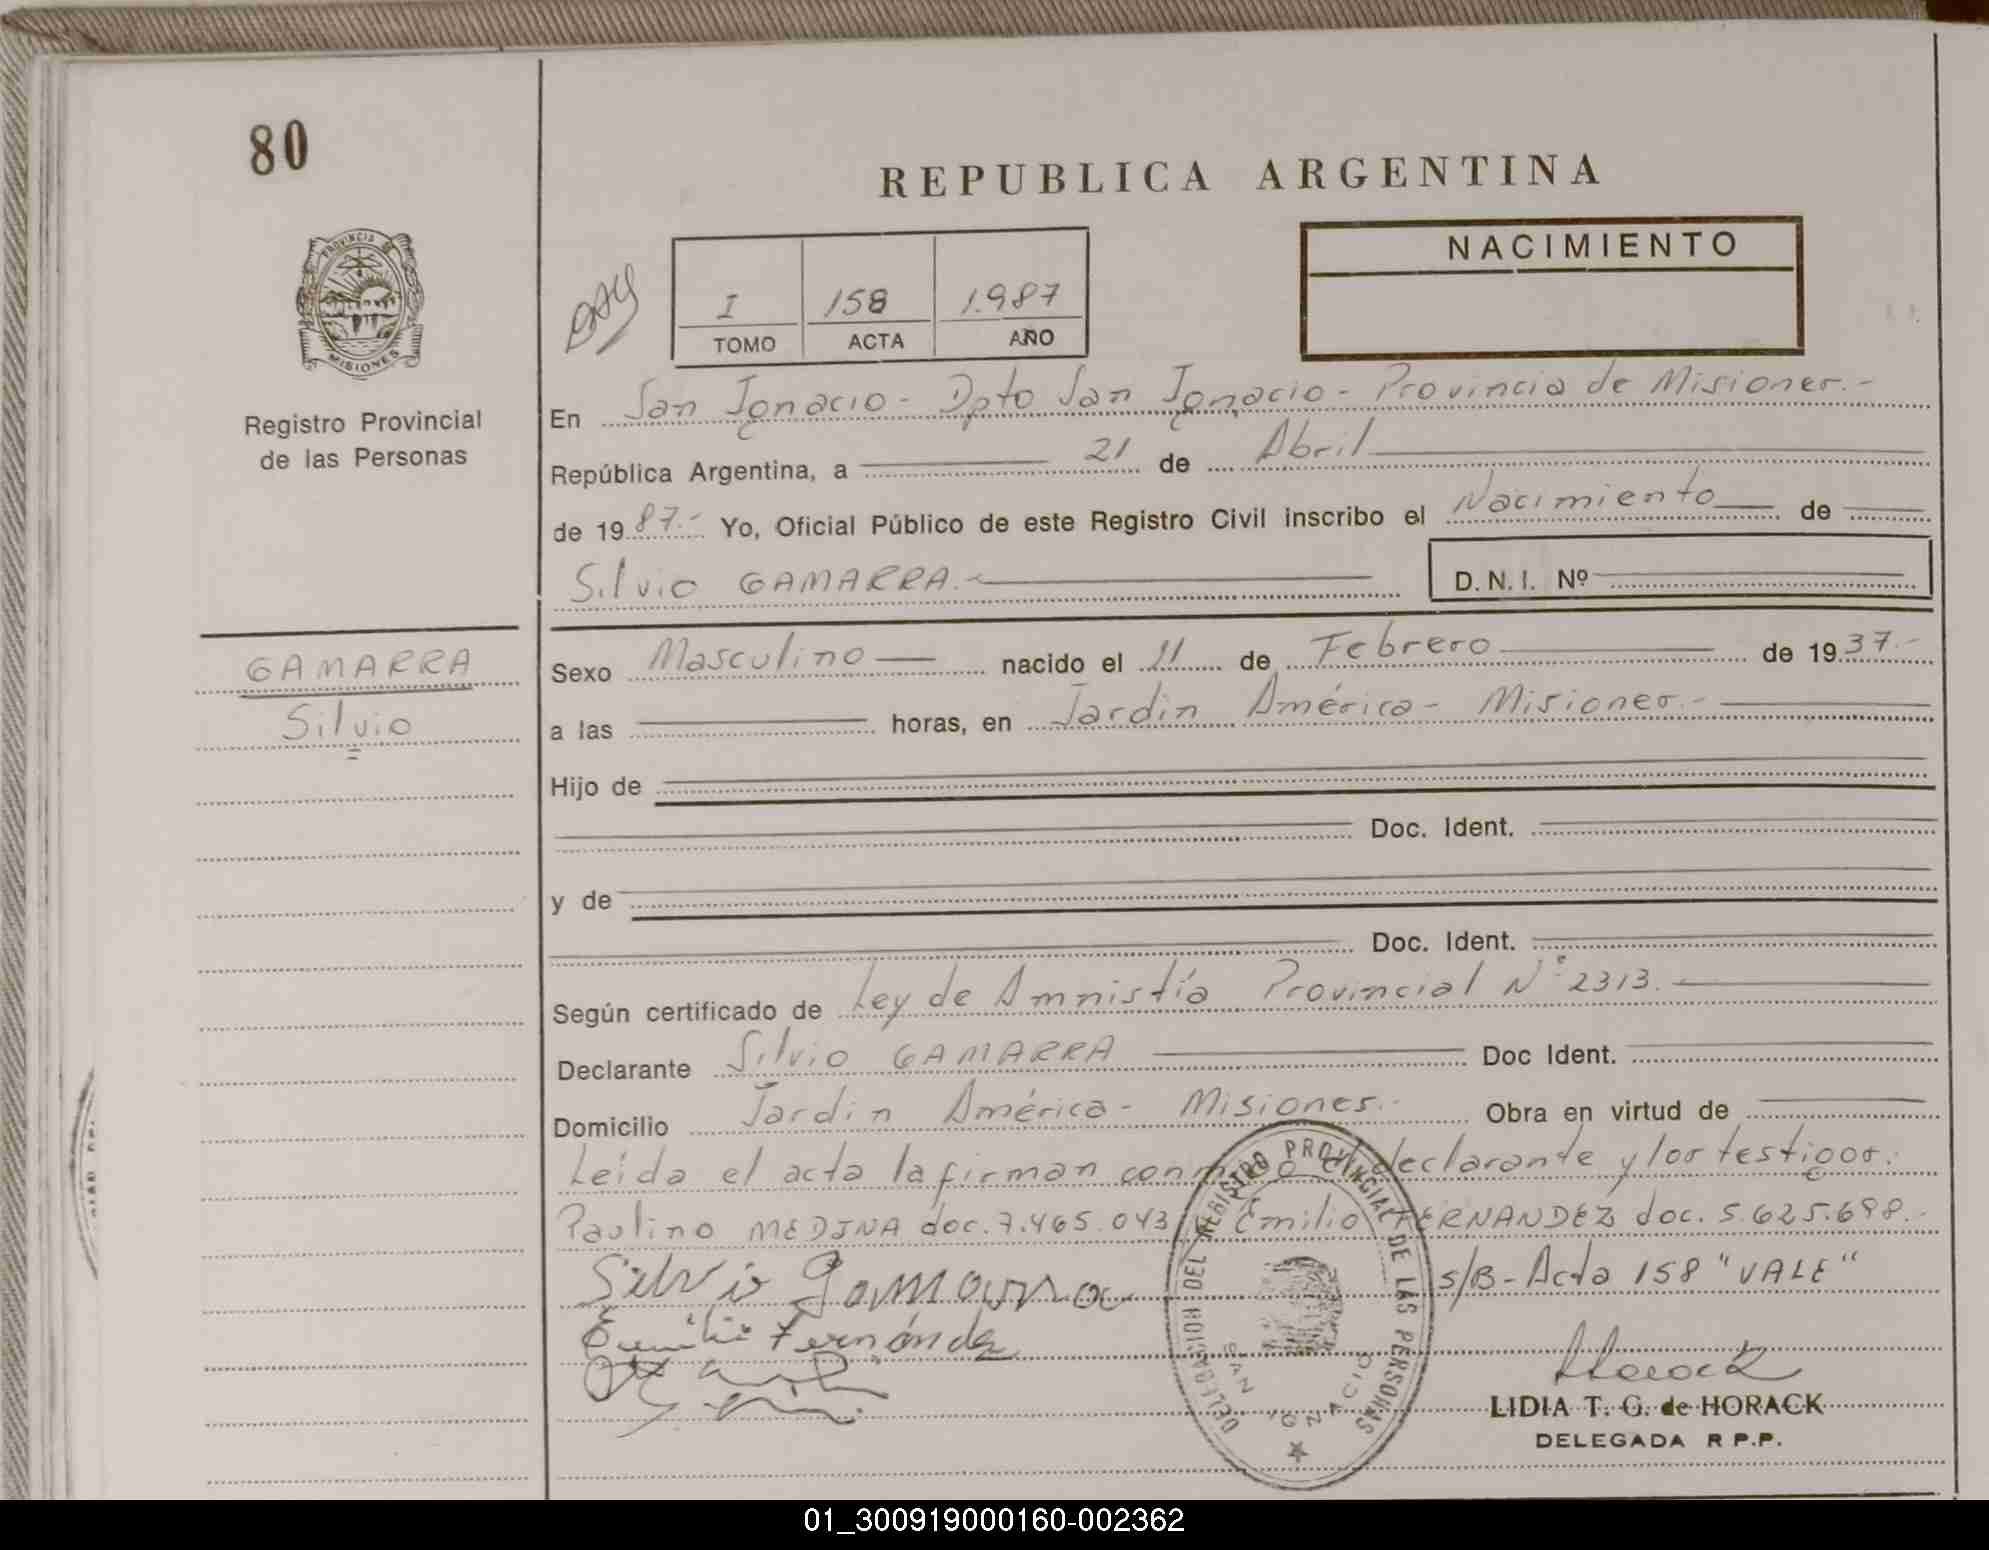 80
REPUBLICA ARGENTINA
PROVINCIA DE
MISIONES
Registro Provincial
de las Personas
NACIMIENTO
I 158 1.987
TOMO ACTA AÑO
En San Ignacio - Dpto San Ignacio - Provincia de Misiones.-
República Argentina, a 21 de Abril
de 1987.- Yo, Oficial Público de este Registro Civil inscribo el Nacimiento de
Silvio GAMARRA.-
D. N. I. Nº
GAMARRA
Silvio
Sexo Masculino nacido el 11 de Febrero de 1937.-
a las horas, en Jardin América - Misiones.-
Hijo de
Doc. Ident.
y de
Doc. Ident.
Según certificado de Ley de Amnistía Provincial N° 2313.
Declarante Silvio GAMARRA Doc Ident.
Domicilio Jardin América - Misiones.- Obra en virtud de
Leída el acta la firman conmigo el declarante y los testigos:
Paulino MEDINA doc. 7.465.043 Emilio FERNANDEZ doc. 5.625.698.-
Silvio Gamarra
s/B - Acta 158 "VALE"
Emilio Fernández
DELEGACION DEL REGISTRO PROVINCIAL DE LAS PERSONAS
SAN IGNACIO
Horack
LIDIA T. G. de HORACK
DELEGADA R P.P.
01_300919000160-002362